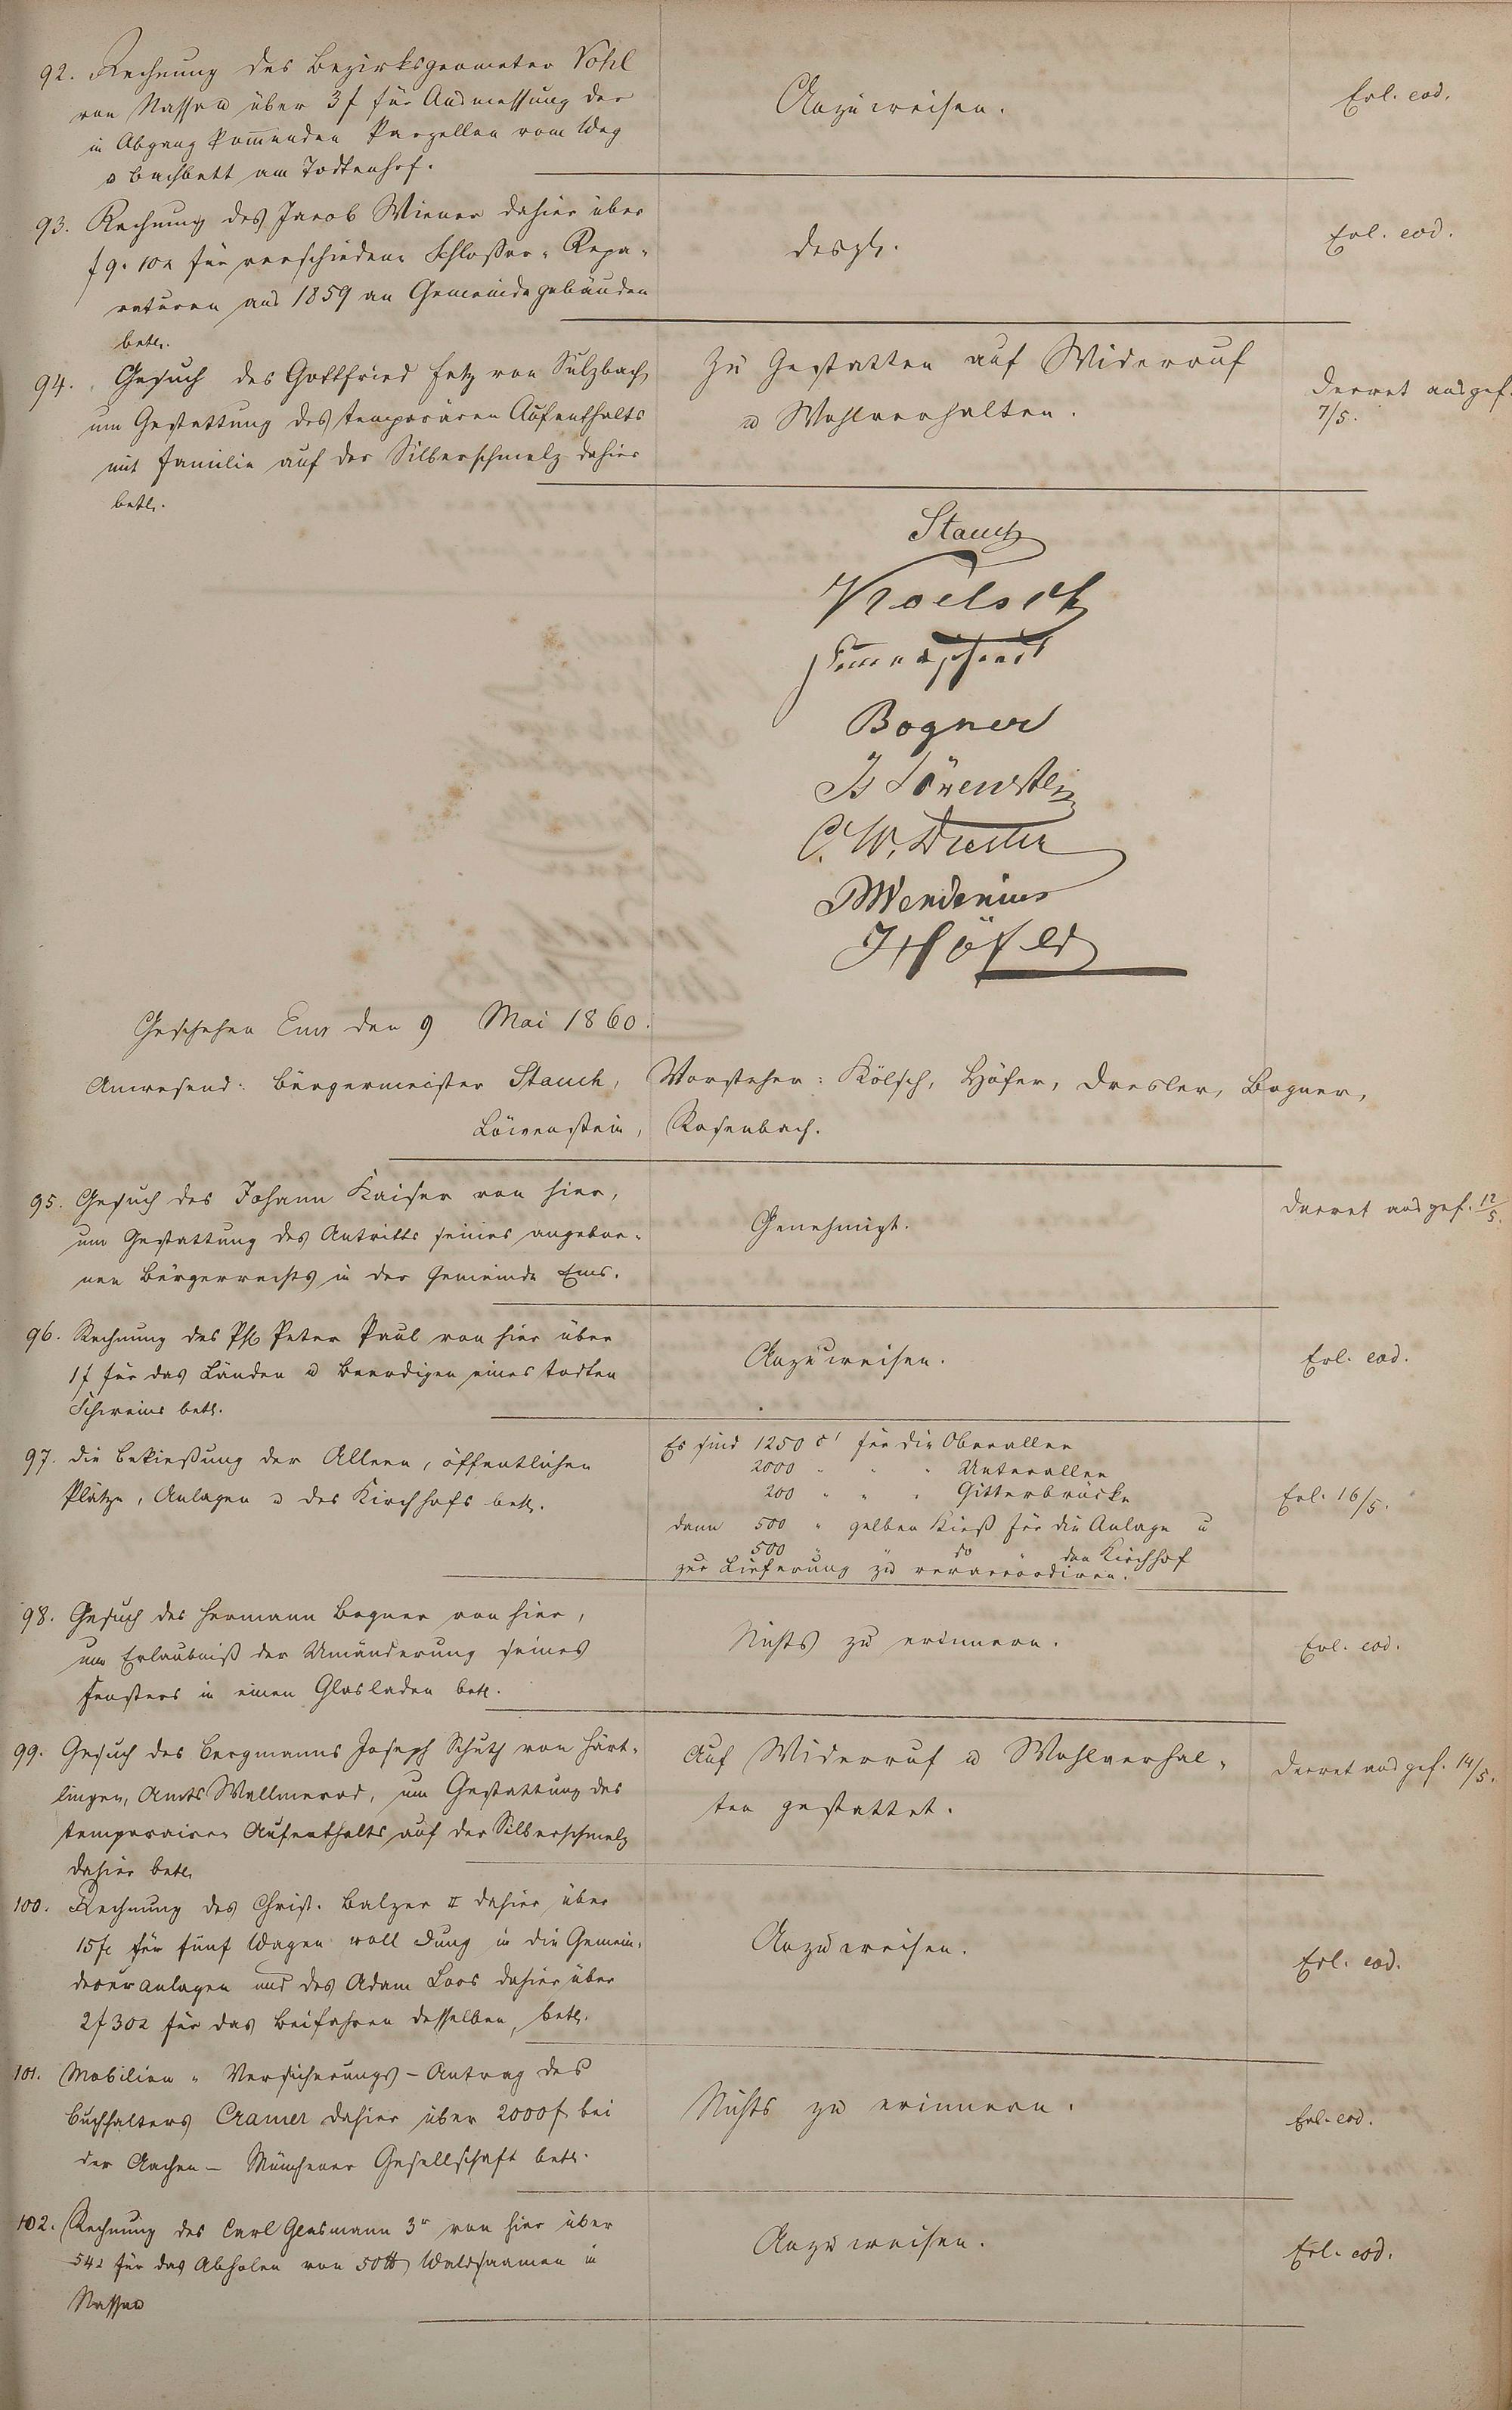 92. Rechnung des Bezirksgeometer Vohl
von Nassau über 3 f für Ausmessung der
in Abgang kom̅enden Parzellen vom Weg
u Bachbett am Todtenhof.
Anzuweisen.
Erl. eod.
93. Rechnung des Jacob Wiener dahier über
f 9. 10 x für verschiedene Schlosser- Repa-
raturen aus 1859 an Gemeindegebäuden
betr.
desgl.
Erl. eod.
94. Gesuch des Gottfried Fetz von Sulzbach
um Gestattung des temporären Aufenthalts
mit Familie auf der Silberschmelz dahier
betr.
Zu Gestatten auf Widerruf
u Wohlverhalten.
Decret ausgef.
7/5.
Stauch
Koelsch
Bogner
Is Löwenstein
C. W. Dresler
Höfer
Geschehen Ems den 9 Mai 1860.
Anwesend: Bürgermeister Stauch, Vorsteher: Kölsch, Höfer, Dresler, Bogner,
Löwenstein, Rosenbach.
95. Gesuch des Johann Kaiser von hier,
um Gestattung des Antritts seines angebor-
nen Bürgerrechts in der Gemeinde Ems.
Genehmigt.
Decret ausgef. 12/5.
96. Rechnung des Peter Paul von hier über
1 f für das Länden u Beerdigen eines todten
Schweins betr.
Anzuweisen.
Erl. eod.
97. Die Bekießung der Alleen, öffentlichen
Plätze, Anlagen u des Kirchhofs betr.
Es sind 1250 c' für die Oberallee
2000 " " " Unterallee
200 " " " Gitterbrücke
dann 500 " gelben Kieß für die Anlage u
500 " do " den Kirchhof
zur Lieferung zu veraccordiren.
Erl. 16/5.
98. Gesuch des Hermann Bogner von hier,
um Erlaubniß der Umänderung seines
Fensters in einen Glasladen betr.
Nichts zu erinnern.
Erl. eod.
99. Gesuch des Bergmanns Joseph Schuth von Härt-
lingen, Amts Wallmerod, um Gestattung des
temporairen Aufenthalts auf der Silberschmelz
dahier betr.
Auf Widerruf u Wohlverhal-
ten gestattet.
Decret ausgef. 14/5.
100. Rechnung des Christ. Balzer II dahier über
15 fl für fünf Wagen voll Dung in die Gemein-
anlagen und des Adam Loos dahier über
2 f 30 x für das Beifahren desselben, betr.
Anzuweisen.
Erl. eod.
101. Mobilien- Versicherungs-Antrag des
Buchhalters Cramer dahier über 2000 f bei
der Aachen- Münchener Gesellschaft betr.
Nichts zu erinnern.
Erl. eod.
102. Rechnung des Carl Glasmann 3r von hier über
54 x für das Abholen von 50 ℔ Waldsaamen in
Nassau
Anzuweisen.
Erl. eod.